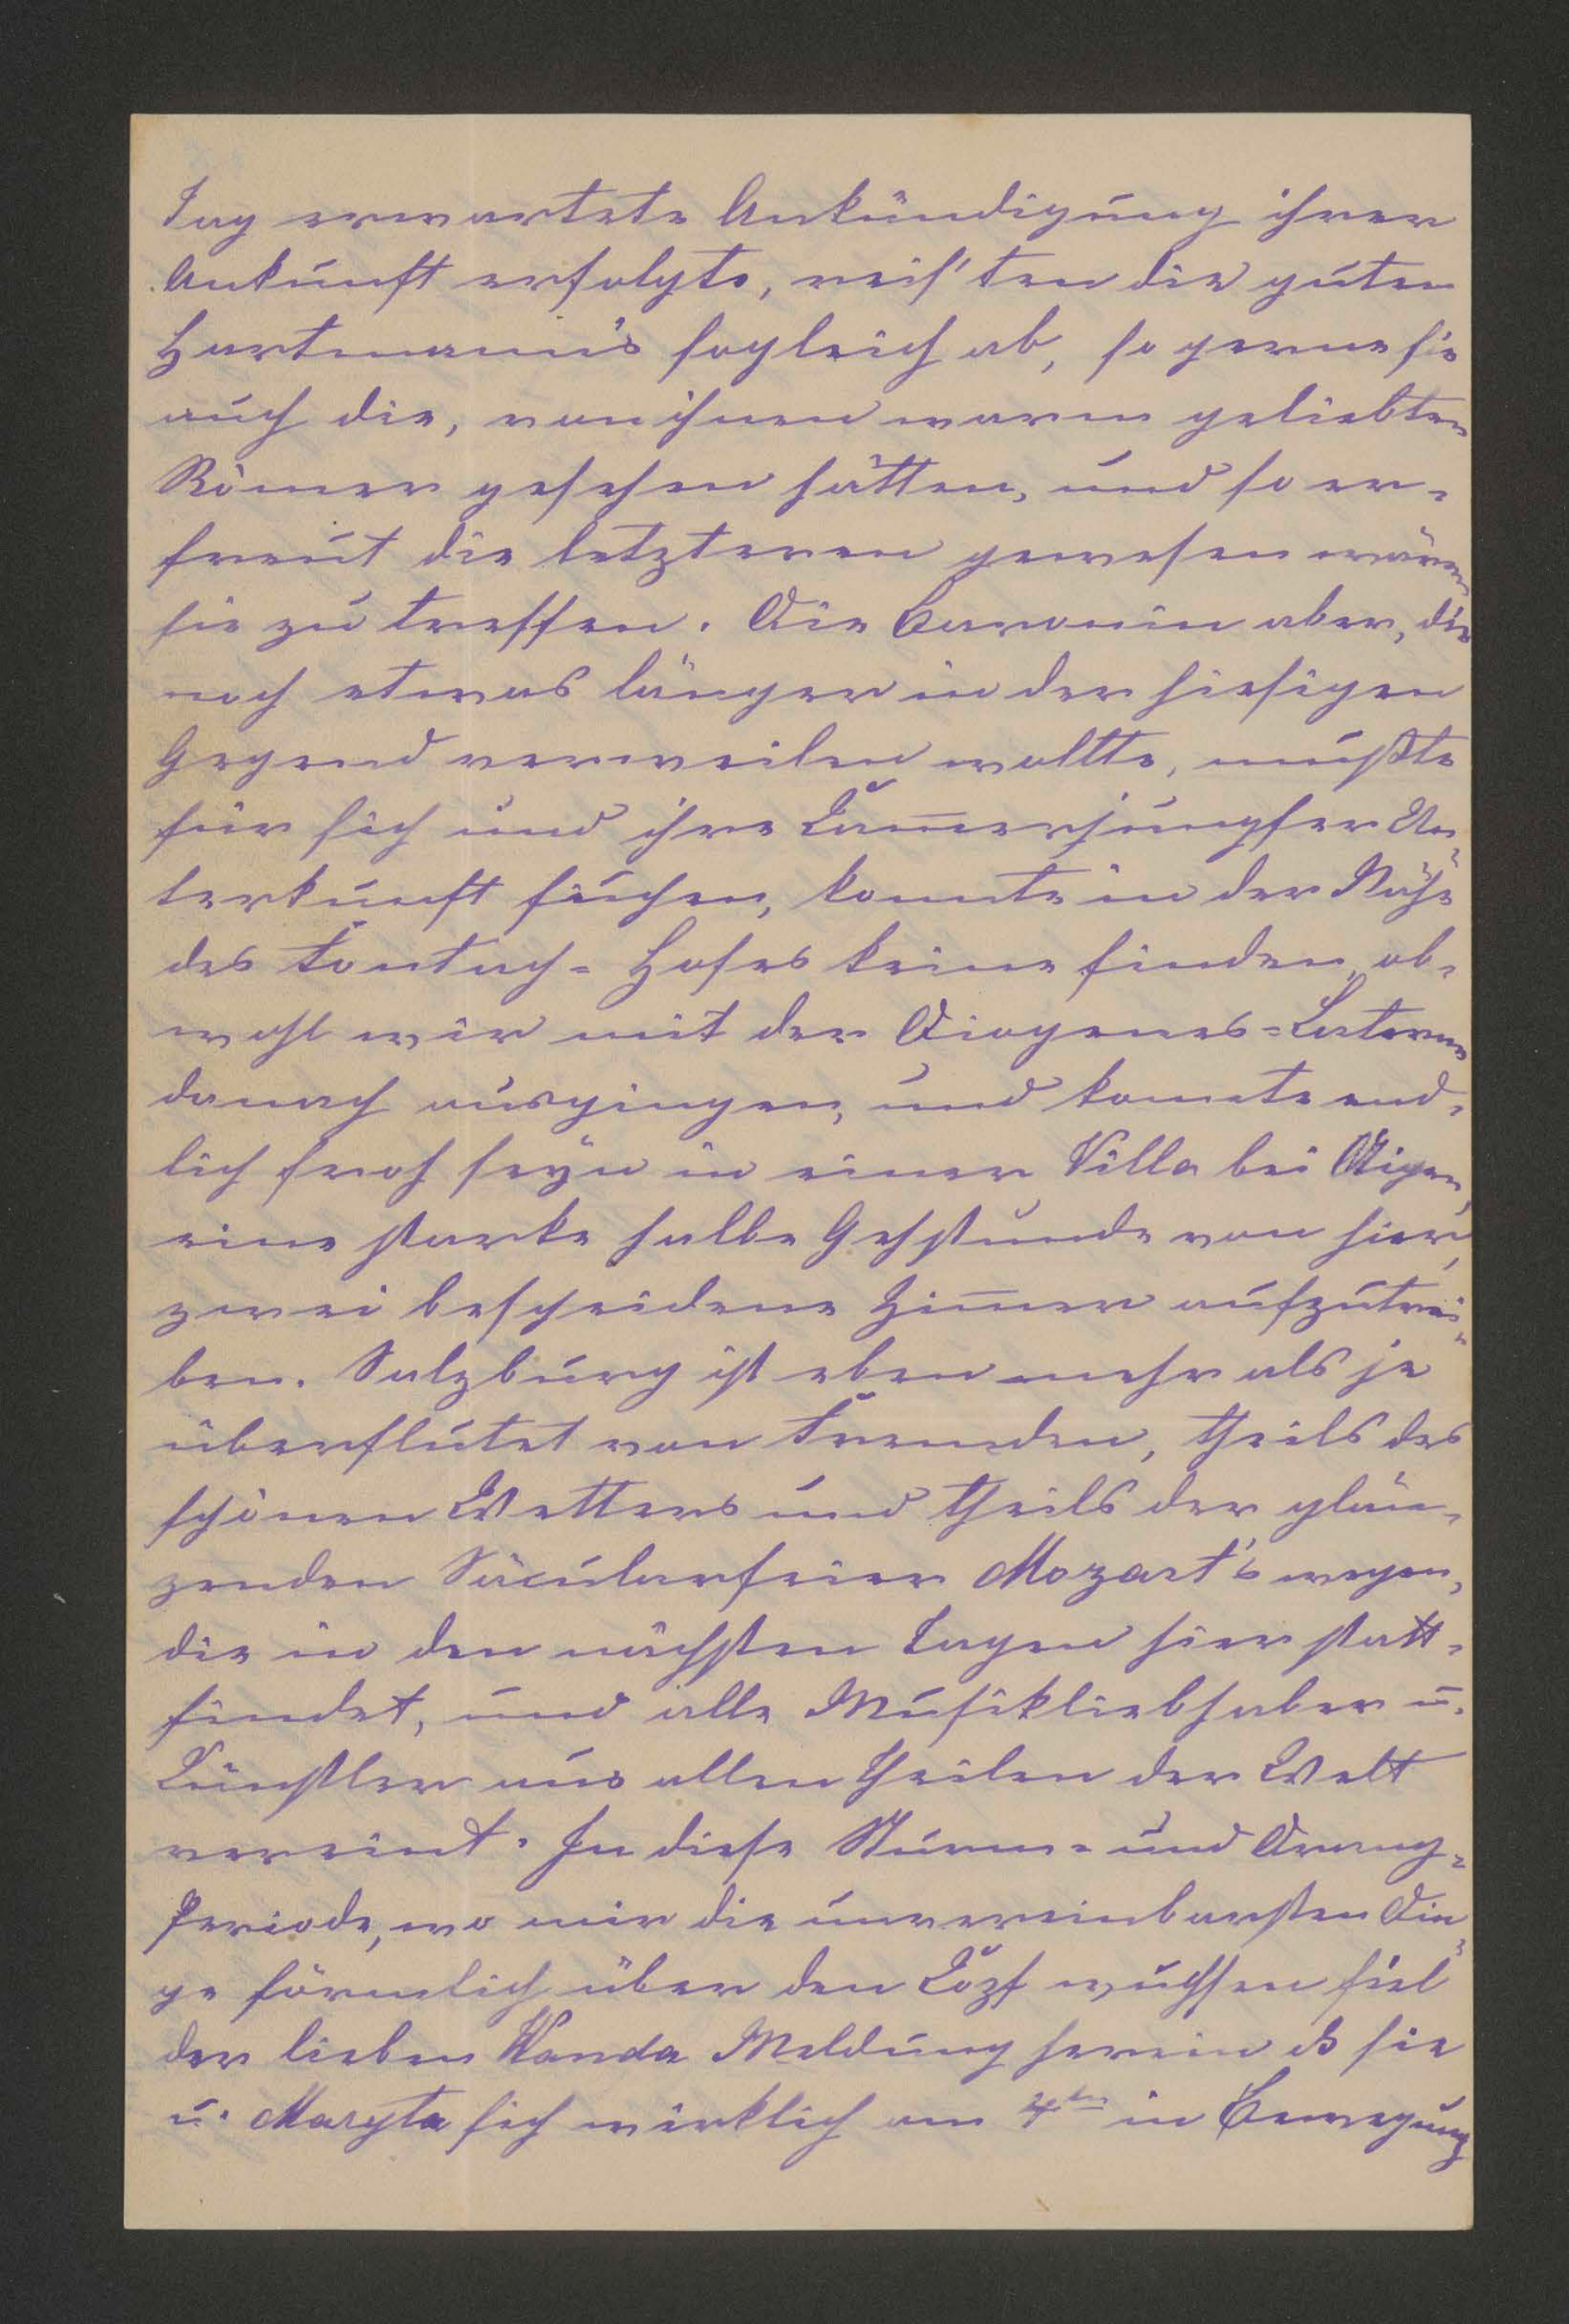 Tag erwartete Ankündigung ihrer
Ankunft erfolgte, reis'ten die guten
Hartmann's sogleich ab, so gerne sie
auch die, von ihnen warm geliebten
Römer gesehen hätten, und so er-
freut die letzteren gewesen wären
sie zu treffen. Die Baronin aber, die
noch etwas länger in der hiesigen
Gegend verweilen wollte, mußte
für sich und ihre Kam̅erjungfer Un-
terkunft suchen, konnte in der Nähe
des Fontach-Hofes keine finden, ob-
wohl wir mit der Diogenes-Laterne
danach ausgingen, und konnte end-
lich froh seyn in einer Villa bei Aigen,
eine starke halbe Gehstunde von hier,
zwei bescheidene Zim̅er aufzutrei-
ben. Salzburg ist eben mehr als je
überflutet von Fremden, theils des
schönen Wetters und theils der glän-
zenden Säcularfeier Mozart's wegen,
die in den nächsten Tagen hier statt-
findet, und alle Musikliebhaber u.
Künstler aus allen Theilen der Welt
vereint. In diese Sturm- und Drang-
Periode, wo mir die unvereinbarsten Din-
ge förmlich über den Kopf wuchsen fiel
der lieben Wanda Meldung herein daß sie
u. Maryta sich wirklich am 4ten in Bewegung